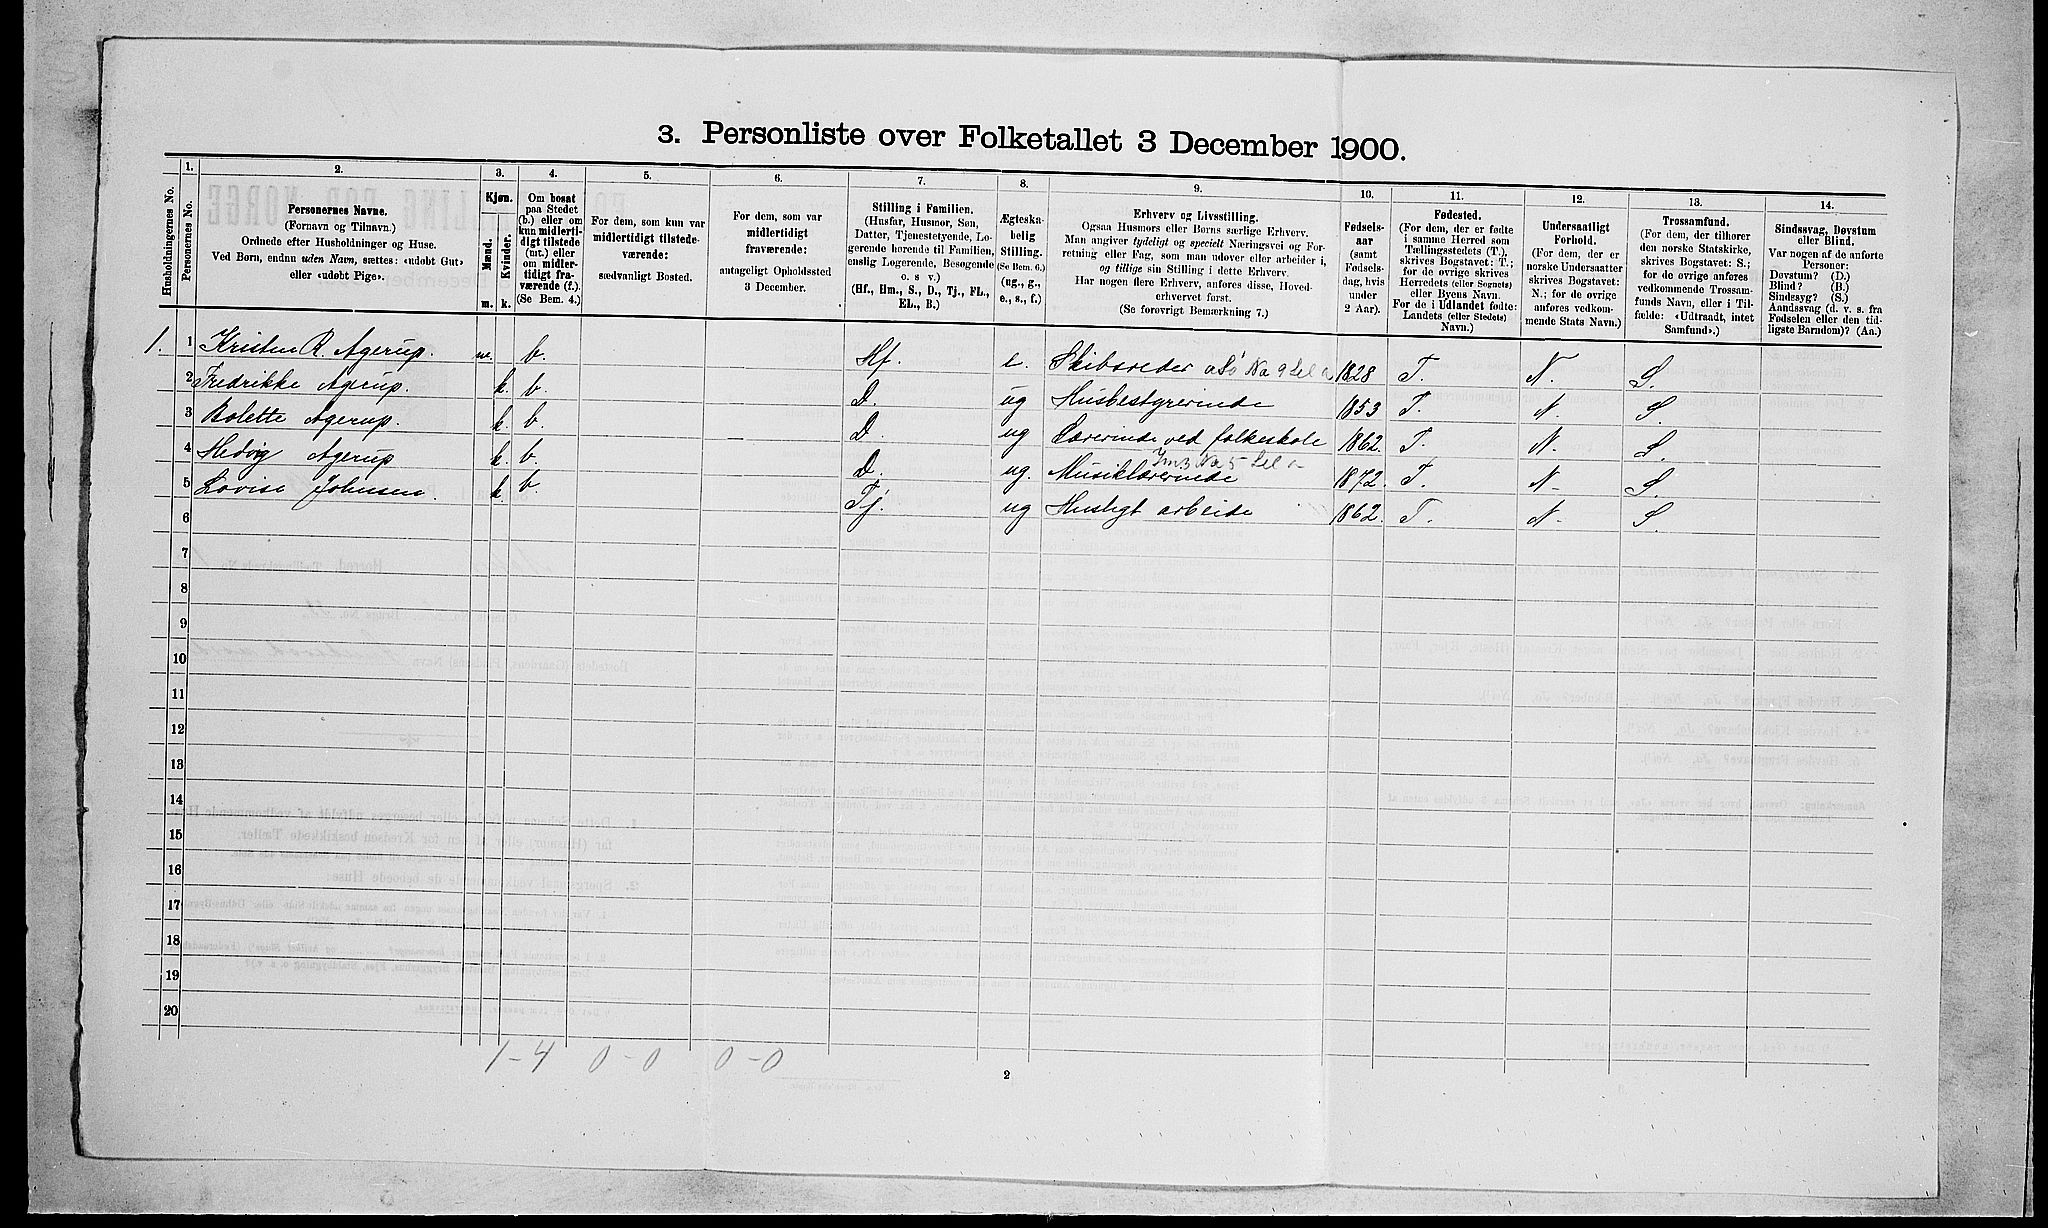 3. Personliste over Folketallet 3 December 1900.
Husholdningernes No.
1.
Personernes No.
2.
Personernes Navne.
(Fornavn og Tilnavn.)
Ordnede efter Husholdninger og Huse.
Ved Børn, endnu uden Navn, sættes: «udøbt Gut»
eller «udøbt Pige».
3.
Kjøn.
Mænd.
Kvinder.
m. k.
4.
Om bosat
paa Stedet
(b.) eller om
kun midlerti-
digt tilstede
(mt.) eller
om midler-
tidigt fra-
værende (f.).
(Se Bem. 4.)
5.
For dem, som kun var
midlertidigt tilstede-
værende:
sædvanligt Bosted.
6.
For dem, som var
midlertidigt
fraværende:
antageligt Opholdssted
3 December.
7.
Stilling i Familien.
(Husfar, Husmor, Søn,
Datter, Tjenestetyende, Lo-
gerende hørende til Familien,
enslig Logerende, Besøgende
o. s. v.)
(Hf., Hm., S., D., Tj., FL.,
EL., B.)
8.
Ægteska-
belig
Stilling.
(Se Bem. 6.)
(ug., g.,
e., s., f.)
9.
Erhverv og Livsstilling.
Ogsaa Husmors eller Børns særlige Erhverv.
Man angiver tydeligt og specielt Næringsvei og For-
retning eller Fag, som man udøver eller arbeider i,
og tillige sin Stilling i dette Erhverv.
Har nogen flere Erhverv, anføres disse, Hoved-
erhvervet først.
(Se forøvrigt Bemærkning 7.)
10.
Fødsels-
aar
(samt
Fødsels-
dag, hvis
under
2 Aar).
11.
Fødested.
(For dem, der er fødte
i samme Herred som
Tællingsstedets (T.),
skrives Bogstavet: T.;
for de øvrige skrives
Herredets (eller Sognets)
eller Byens Navn.
For de i Udlandet fødte:
Landets (eller Stedets)
Navn.)
12.
Undersaatligt
Forhold.
(For dem, der er
norske Undersaatter
skrives Bogstavet:
N.; for de øvrige
anføres vedkom-
mende Stats Navn.)
13.
Trossamfund.
(For dem, der tilhører
den norske Statskirke,
skrives Bogstavet: S.;
for de øvrige anføres
vedkommende Trossam-
funds Navn, eller i Til-
fælde: «Udtraadt, intet
Samfund».)
14.
Sindssvag, Døvstum
eller Blind.
Var nogen af de anførte
Personer:
Døvstum? (D.)
Blind? (B.)
Sindssyg? (S.)
Aandssvag (d. v. s. fra
Fødselen eller den tid-
ligste Barndom)? (Aa.)
1. 1 Kristen R. Agerup. m. b. Hf. e. Skibsreder 1828 T. N. S.
2 Fredrikke Agerup. k. b. D. ug Husbestyrerinde 1853 T. N. S.
3 Bolette Agerup. k. b. D. ug Lærerinde ved folkeskole 1862. T. N. S.
4 Hedvig Agerup k. b. D. ug. Musiklærerinde 1872. T. N. S.
5 Lovise Johnsen. k. b. Tj. ug Husligt arbeide 1862. T. N. S.
6
7
8
9
10
11
12
13
14
15
16
17
18
19
20
1-4 0-0 0-0
2